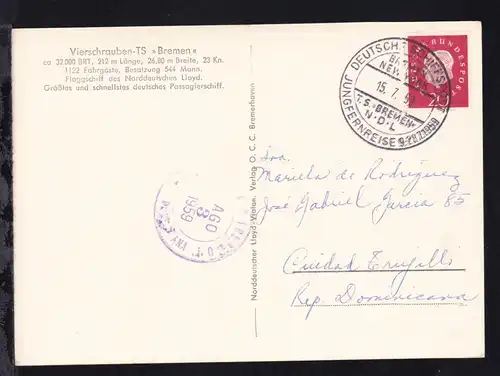 Vierschrauben-TS »Bremen«
ca 32 000 BRT, 212 m Länge, 26,80 m Breite, 23 Kn.
1122 Fahrgäste, Besatzung 544 Mann.
Flaggschiff des Norddeutschen Lloyd.
Größtes und schnellstes deutsches Passagierschiff.
DEUTSCHE
NEW
15. 7. 59
T.S. »BREMEN«
N·D·L
JUNGFERNREISE 9.-28.7.1959
BUNDESPOST
20
AGO
8
1959
Norddeutscher Lloyd Verlag O. C. C. Bremerhaven
Sra.
Mariela de Rodriguez
José Gabriel Garcia 85
Ciudad Trujillo
Rep. Dominicana